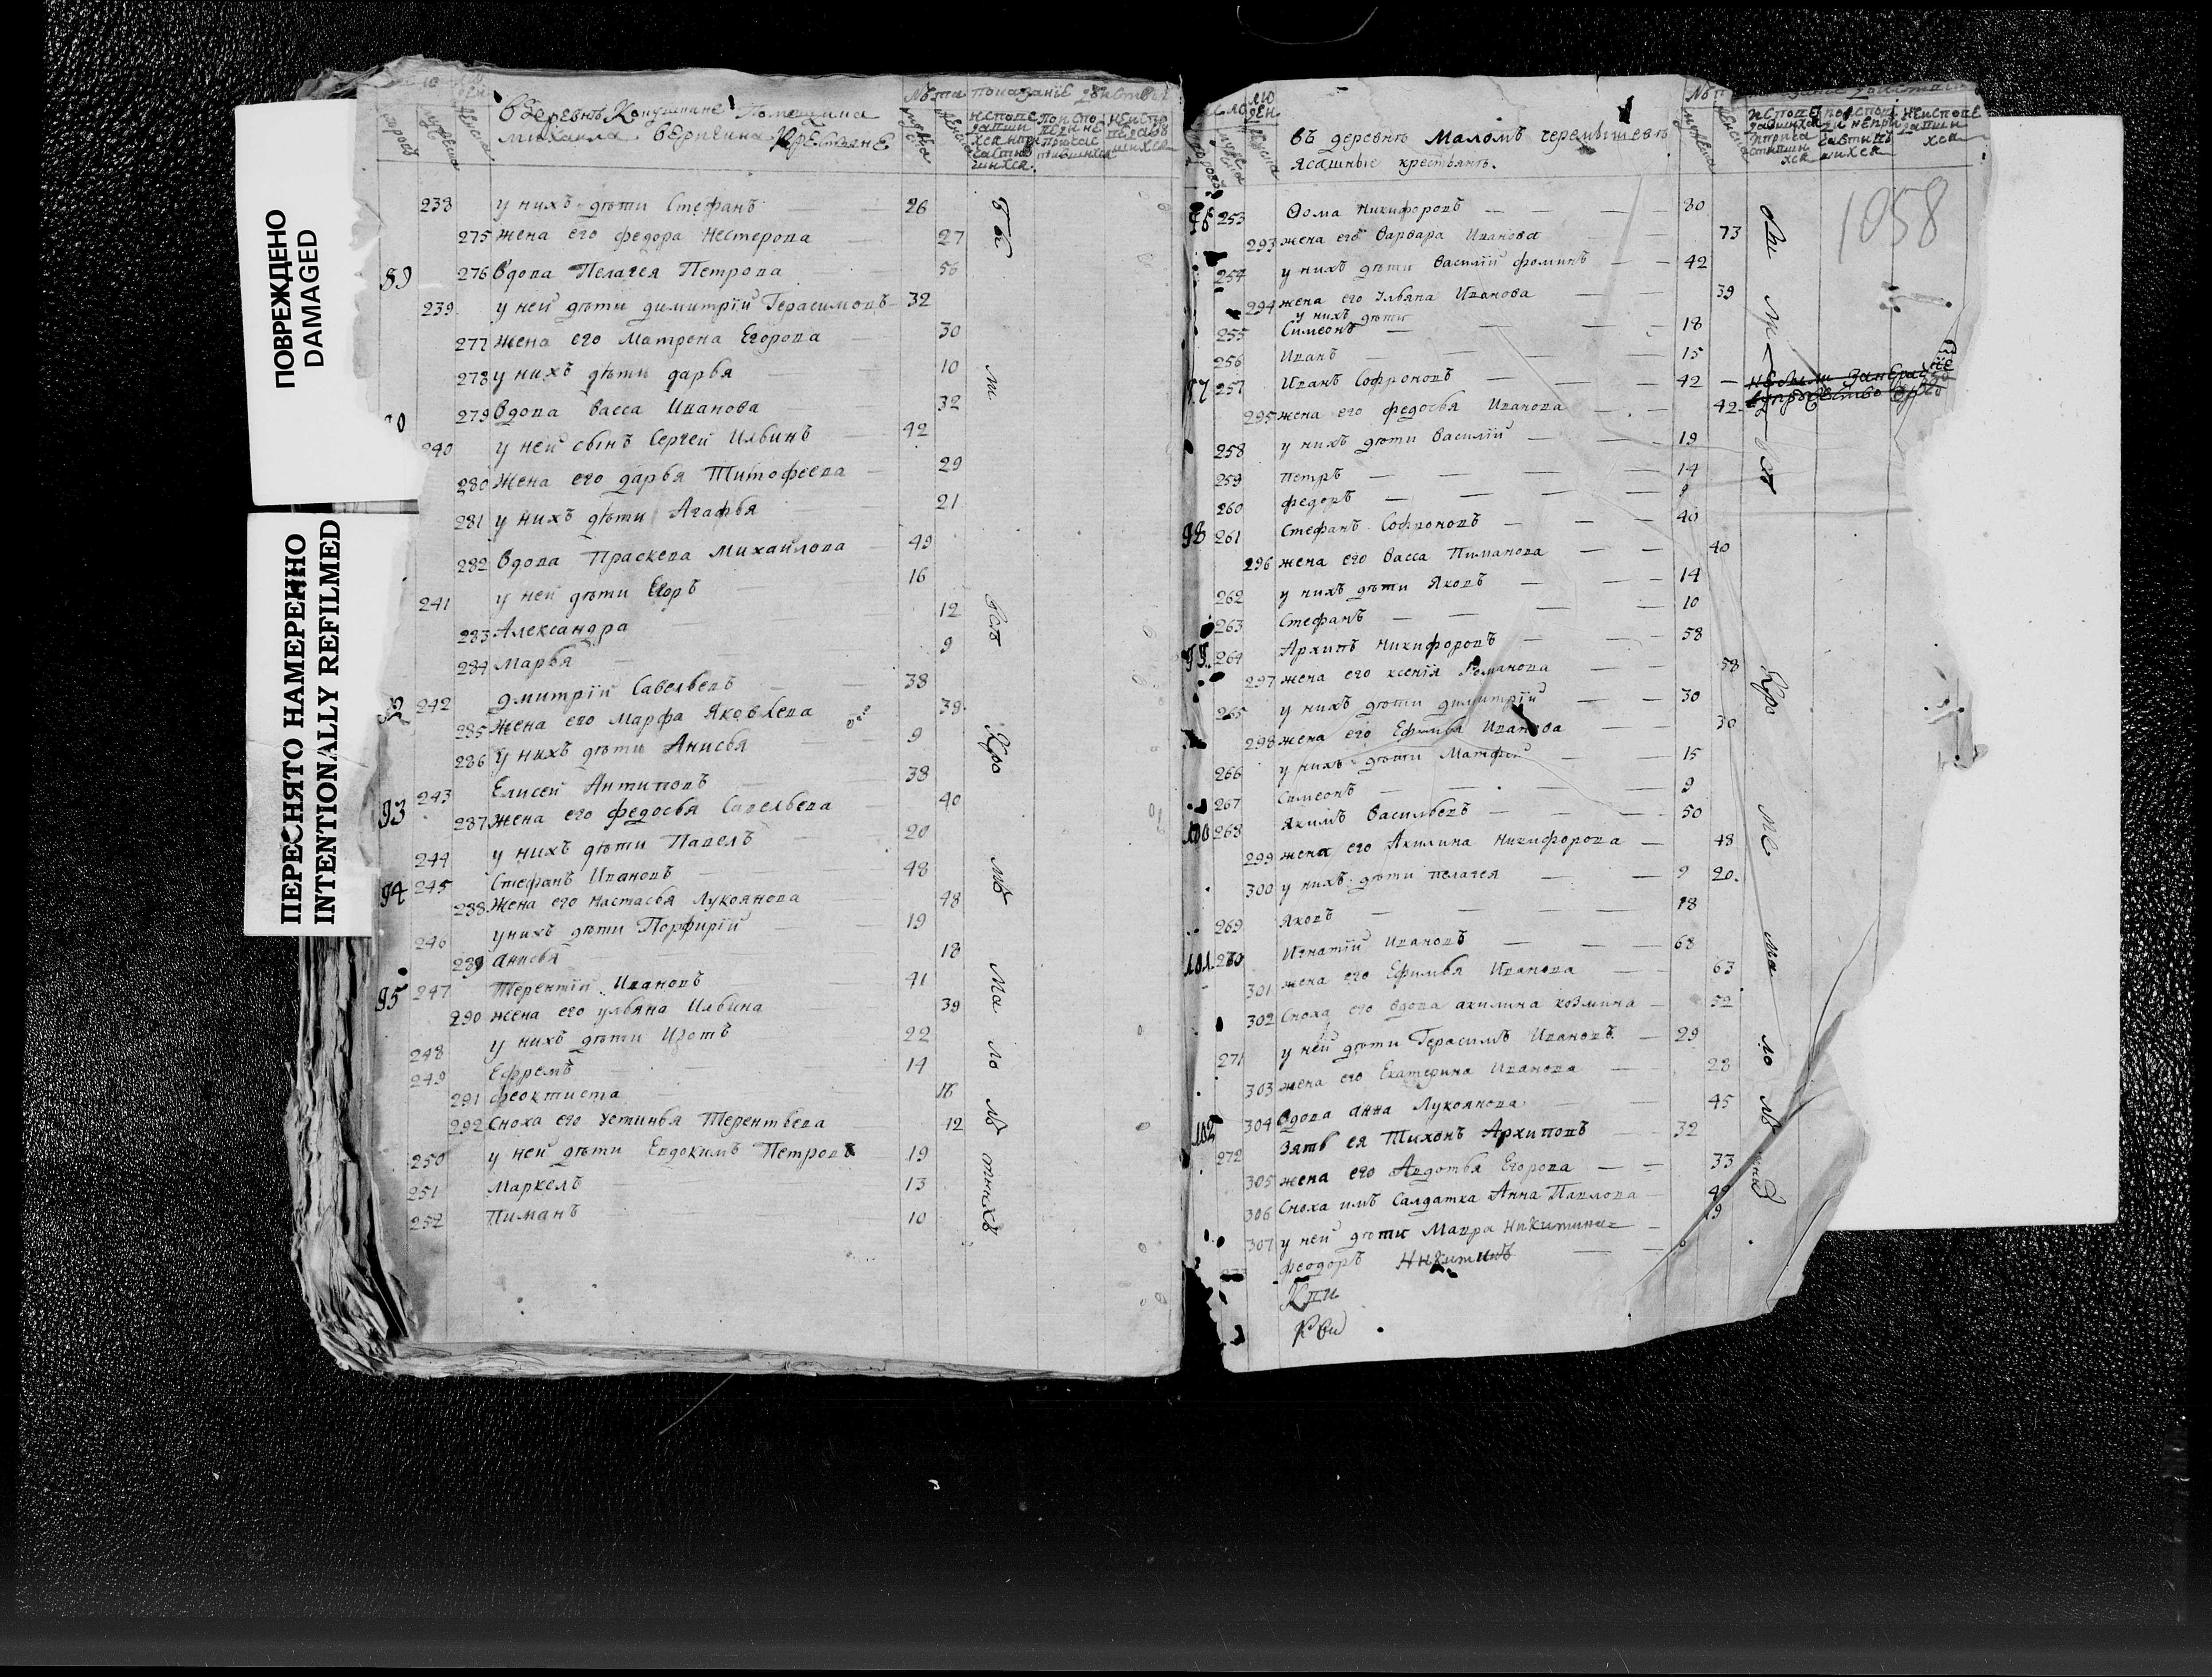 ПОВРЕЖДЕНО
DAMAGED
ПЕРЕСНЯТО НАМЕРЕННО
INTENTIONALLY REFILMED
Въ деревнѣ помещика
михаила Веригина крестьяне
238 у нихъ дѣти Стефанъ 26
275 жена его федора Нестерова 27
89 276 вдова Пелагея Петрова 56
239 у ней дѣти димитрїй Герасимовъ 32
277 жена его Матрена Егорова 30
278 у нихъ дѣти дарья 10
279 вдова васса Иванова 32
240 у ней сынъ Сергей Ильинъ 42
280 жена его дарья Тимофеева 29
281 у нихъ дѣти Агафья 21
282 вдова Праскева Михайлова 49
241 у ней дѣти Егоръ 16
283 Александра 12
284 марья 9
92 242 дмитрїй Савельевъ 38
285 жена его марфа Яковлева 39
286 у нихъ дѣти Анисья 9
93 243 Елисей Антиповъ 38
287 жена его федосья Савельева 40
244 у нихъ дѣти Павелъ 20
94 245 Стефанъ Ивановъ 48
288 жена его настасья Лукоянова 48
246 у нихъ дѣти Порфирїй 19
289 анисья 18
95 247 Терентїй Ивановъ 41
290 жена его ульяна Ильина 39
248 у нихъ дѣти Изотъ 22
249 Ефремъ 14
291 феоктиста 16
292 Сноха его Устинья Терентьева 12
250 у ней дѣти Евдокимъ Петровъ 19
251 маркелъ 13
252 Пиманъ 10
въ деревнѣ Маломъ черемышевѣ
ясашные крестьянѣ.
1058
253 Ѳома никифоровъ 80
293 жена его варвара Иванова 73
254 у нихъ дѣти василїй фоминъ 42
294 жена его ульяна Иванова 39
у нихъ дѣти
255 Симеонъ 18
256 Иванъ 15
97 257 Иванъ Софроновъ 42
295 жена его федосья Иванова 42
258 у нихъ дѣти василїй 19
259 петръ 14
260 федоръ 9
98 261 Стефанъ Софроновъ 40
296 жена его васса Пиманова 40
262 у нихъ дѣти Яковъ 14
263 Стефанъ 10
99 264 Архипъ никифоровъ 58
297 жена его ксенїя Романова 58
265 у нихъ дѣти димитрїй 30
298 жена его Ефимья Иванова 30
266 у нихъ дѣти Матфей 15
267 Симеонъ 9
100 268 Якимъ васильевъ 50
299 жена его Акилина никифорова 48
300 у нихъ дѣти пелагея 20
269 Яковъ 18
101 270 Игнатїй Ивановъ 68
301 жена его Ефимья Иванова 63
302 Сноха его вдова акилина козмина 52
271 у ней дѣти Герасимъ Ивановъ 29
303 жена его Екатерина Иванова 28
304 вдова анна Лукоянова 45
102 272 Зять ея Тихонъ Архиповъ 32
305 жена его Авдотья Егорова 33
306 Сноха имъ Салдатка Анна Павлова
307 у ней дѣти Мавра Никитина
феодоръ Никитинъ